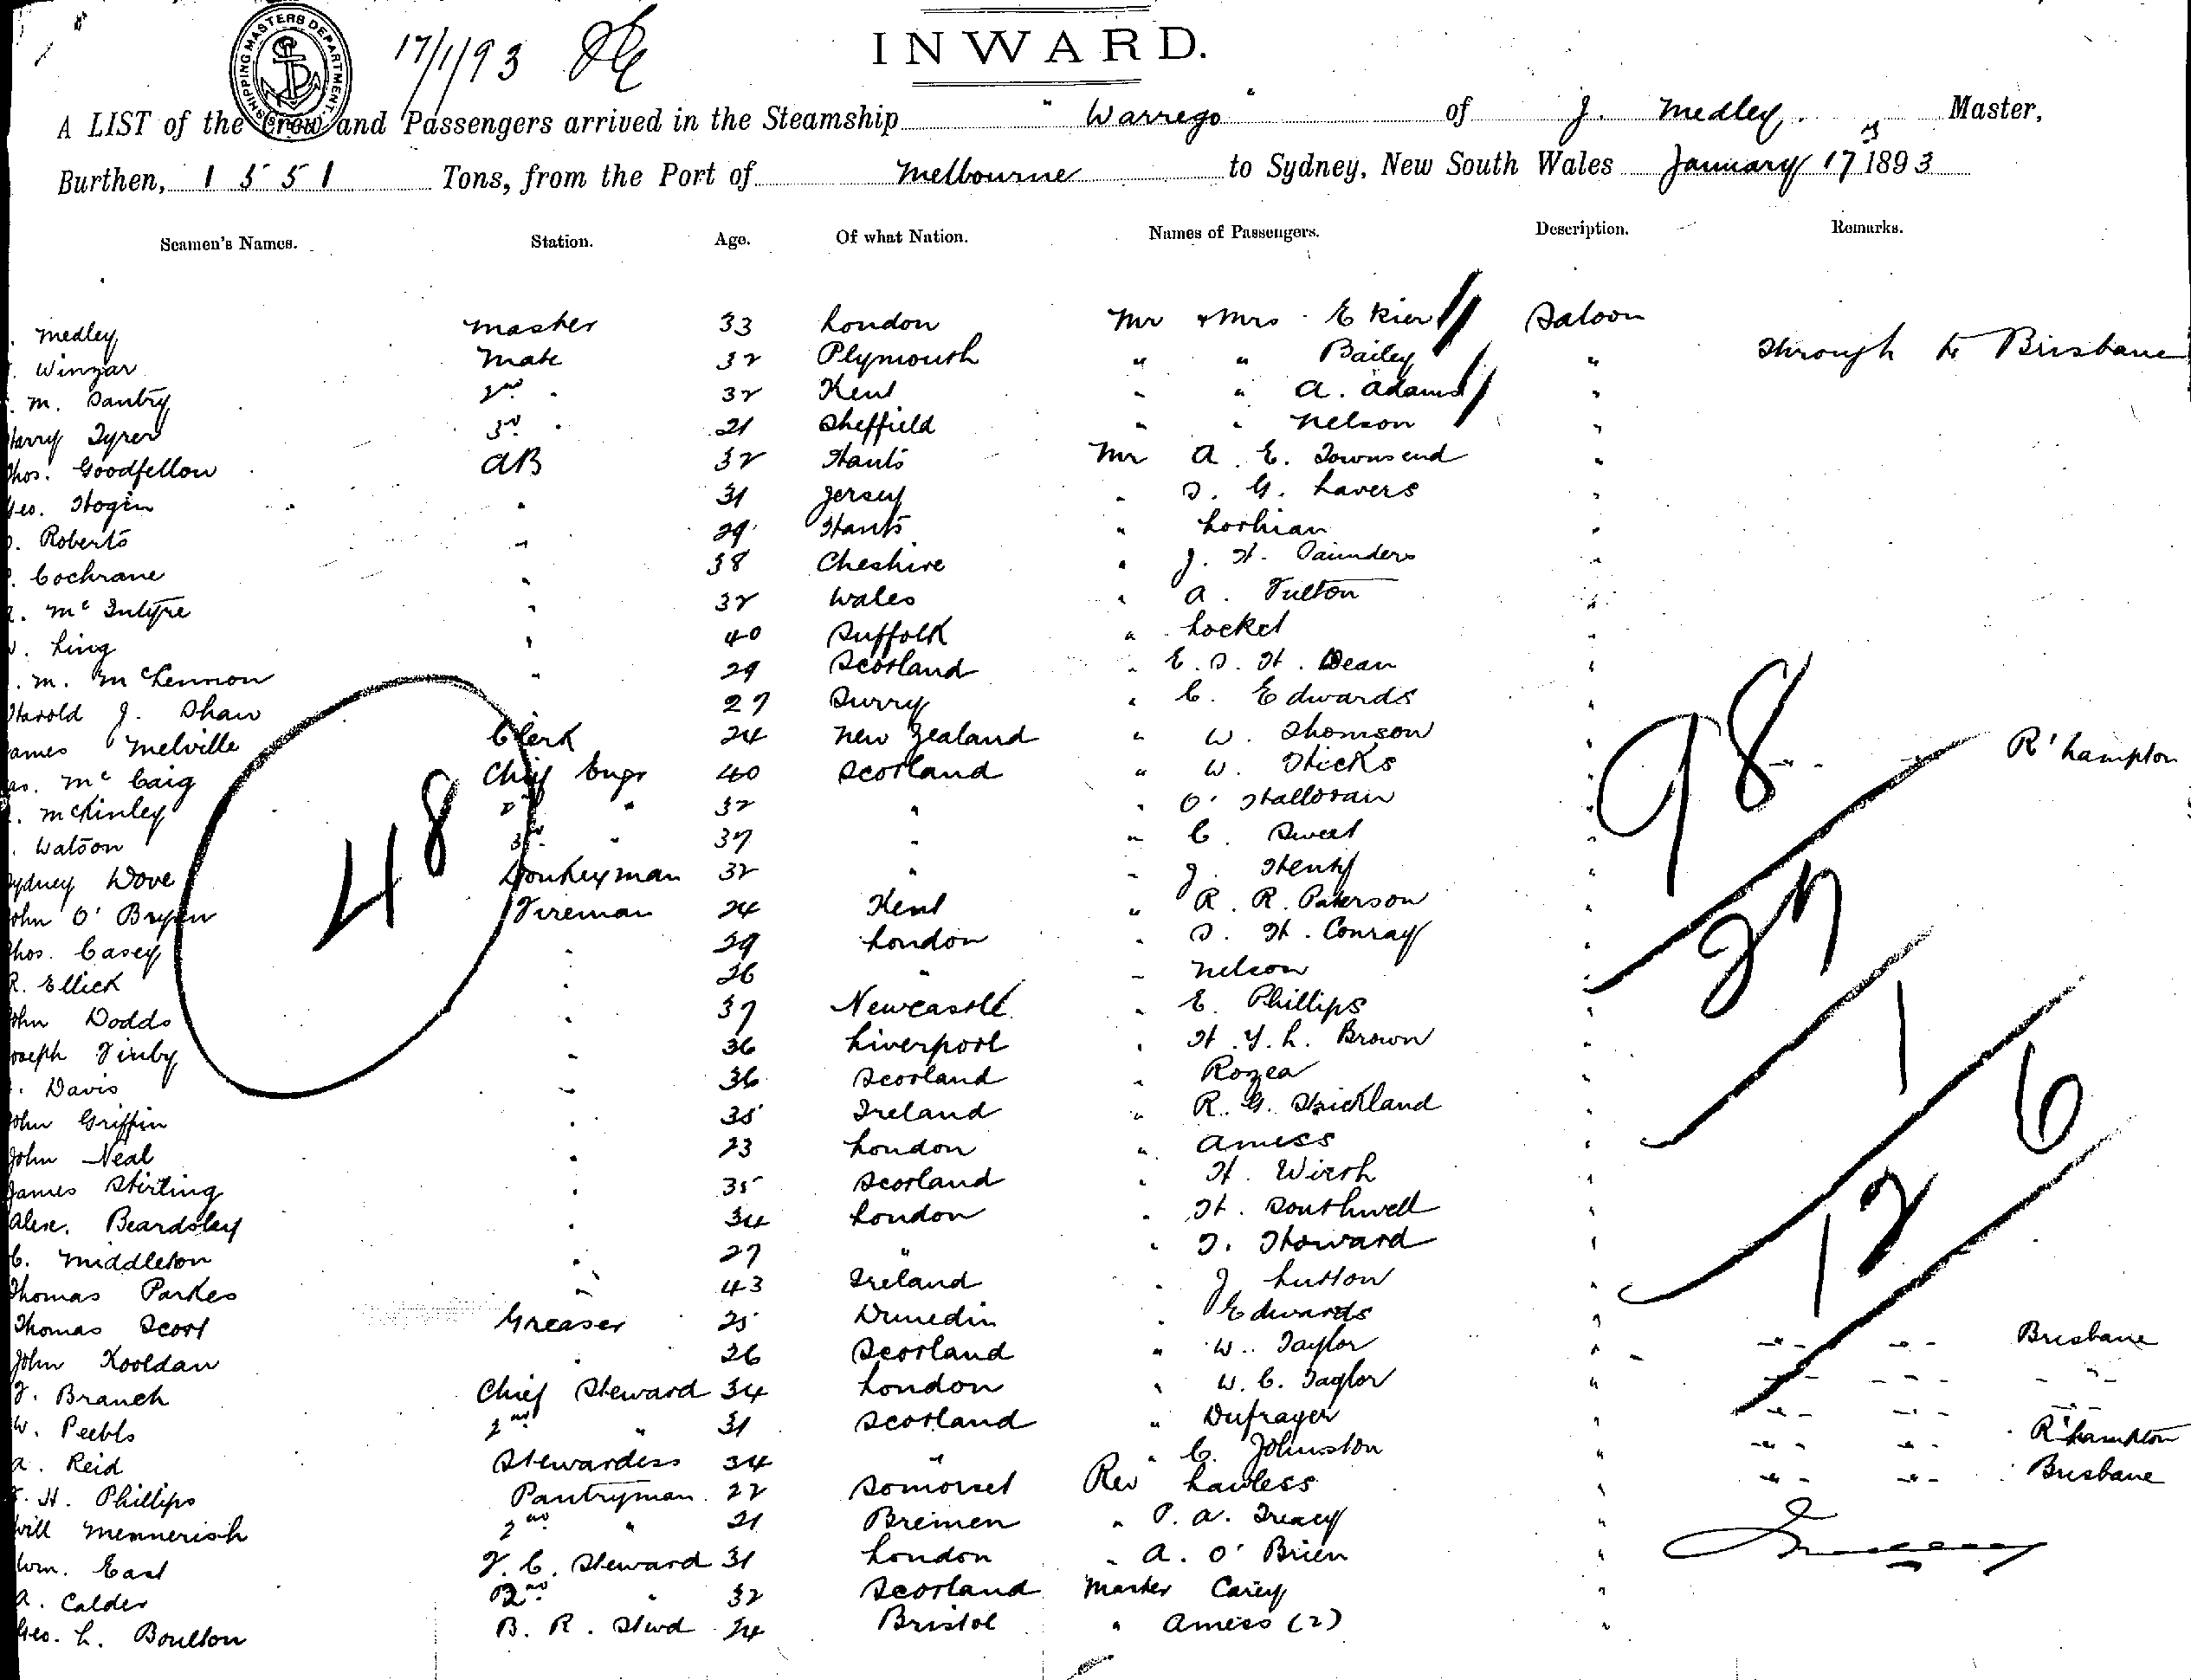 SHIPPING MASTERS DEPARTMENT.
17/1/93
INWARD.
A LIST of the Crew and Passengers arrived in the Steamship "Warrego" of J. Medley. Master,
Burthen, 1551 Tons, from the Port of Melbourne to Sydney, New South Wales January 17 1893
Seamen's Names. Station. Age. Of what Nation. Names of Passengers. Description. Remarks.
. Medley Master 33 London Mr + Mrs E Kier Saloon
. Winzar Mate 32 Plymouth " " Bailey " Through to Brisbane
. M. Santry 2nd " 32 Kent " " A. Adams "
Harry Tyrer 3rd " 21 Sheffield " " Nelson "
Thos. Goodfellow AB 32 Hants Mr A. E. Townsend "
Geo. Hogin " 31 Jersey " S. G. Lavers "
. Roberts " 29 Hants " Lothian "
. Cochrane " 38 Cheshire " J. H. Saunders "
. McIntyre " 32 Wales " A. Fulton "
. Ling " 40 Suffolk " Locket "
. M. McLennon " 29 Scotland " E. S. H. Dean "
Harold J. Shaw 27 Surry " C. Edwards "
James Melville Clerk 24 New Zealand " W. Thomson "
as. McCaig Chief Engr 40 Scotland " W. Hicks " " " R'hampton
. McKinley 2nd " 32 " " O'Halloran "
. Watson 3rd " 37 " " C. Sweet "
Sydney Dove Donkeyman 32 " " J. Henty "
John O'Bryen Fireman 24 Kent " R. R. Paterson "
Thos. Casey " 29 London " S. H. Conray "
R. Ellick " 26 " " Nelson "
John Dodds " 37 Newcastle " E. Phillips "
Joseph Firby " 36 Liverpool " H. Y. L. Brown "
. Davis " 36 Scotland " Rozea "
John Griffin " 35 Ireland " R. G. Strickland "
John Neal " 23 London " Amess "
James Stirling " 35 Scotland " H. Wirth "
Alex. Beardsley " 34 London " H. Southwell "
C. Middleton " 27 " " T. Howard "
Thomas Parkes " 43 Ireland " J Lutton "
Thomas Scott Greaser 25 Dunedin " Edwards "
John Kooldan " 26 Scotland " W. Taylor " " " Brisbane
F. Branch Chief Steward 34 London " W. C. Taylor " " " "
W. Peebls 2nd " 31 Scotland " Dufrayer " " "
A. Reid Stewardess 34 " " C. Johnston " " " R'hampton
. H. Phillips Pantryman 22 Somerset Rev Lawless " " " Brisbane
Will Mennerich 2nd " 21 Bremen " P. A. Treacy "
Wm. East F. C. Steward 31 London " A. O'Brien "
A. Calder 2nd " 32 Scotland Master Carey "
Geo. L. Boulton B. R. Stwd 24 Bristol " Amess (2) "
48
98
27
1
6
12